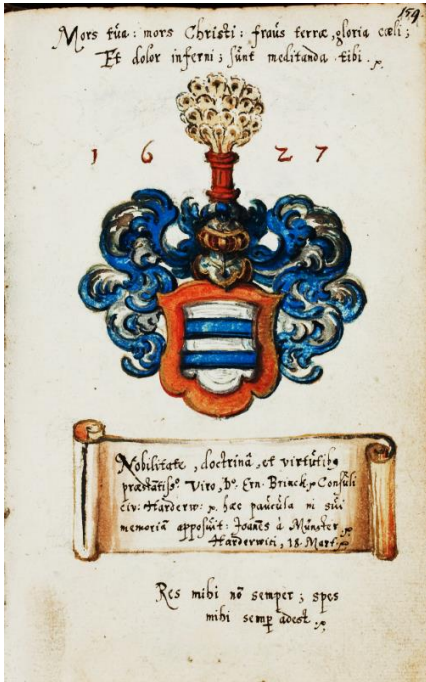 159.
Mors tũa: mors Christi: fraũs terræ, gloria cœli;
Et dolor inferni; sũnt meditanda tibi.
1 6 2 7
Nobilitate, doctrinâ, et virtũtibq
præstãtissº. Viro, Dº. Ern. Brinck, Consũli
civ: Harderw: hæc paũcũla in sũi
memoriã apposũit: Joanẽs à Mũnster
Harderwici, 18. Mart:
Res mihi nõ semper; spes
mihi semp adest.